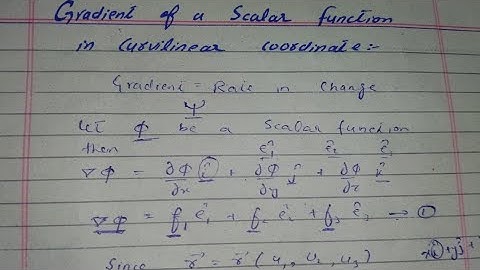 Gradient of a Scalar function
in Curvilinear coordinate:-
Gradient = Rate in Change
ψ
Let Φ be a Scalar function
then ê₁ ê₂ ê₃
∇Φ = ∂Φ/∂x î + ∂Φ/∂y ĵ + ∂Φ/∂z k̂
∇Φ = f₁ ê₁ + f₂ ê₂ + f₃ ê₃ → ①
Since r⃗ = r⃗ (u₁, u₂, u₃)